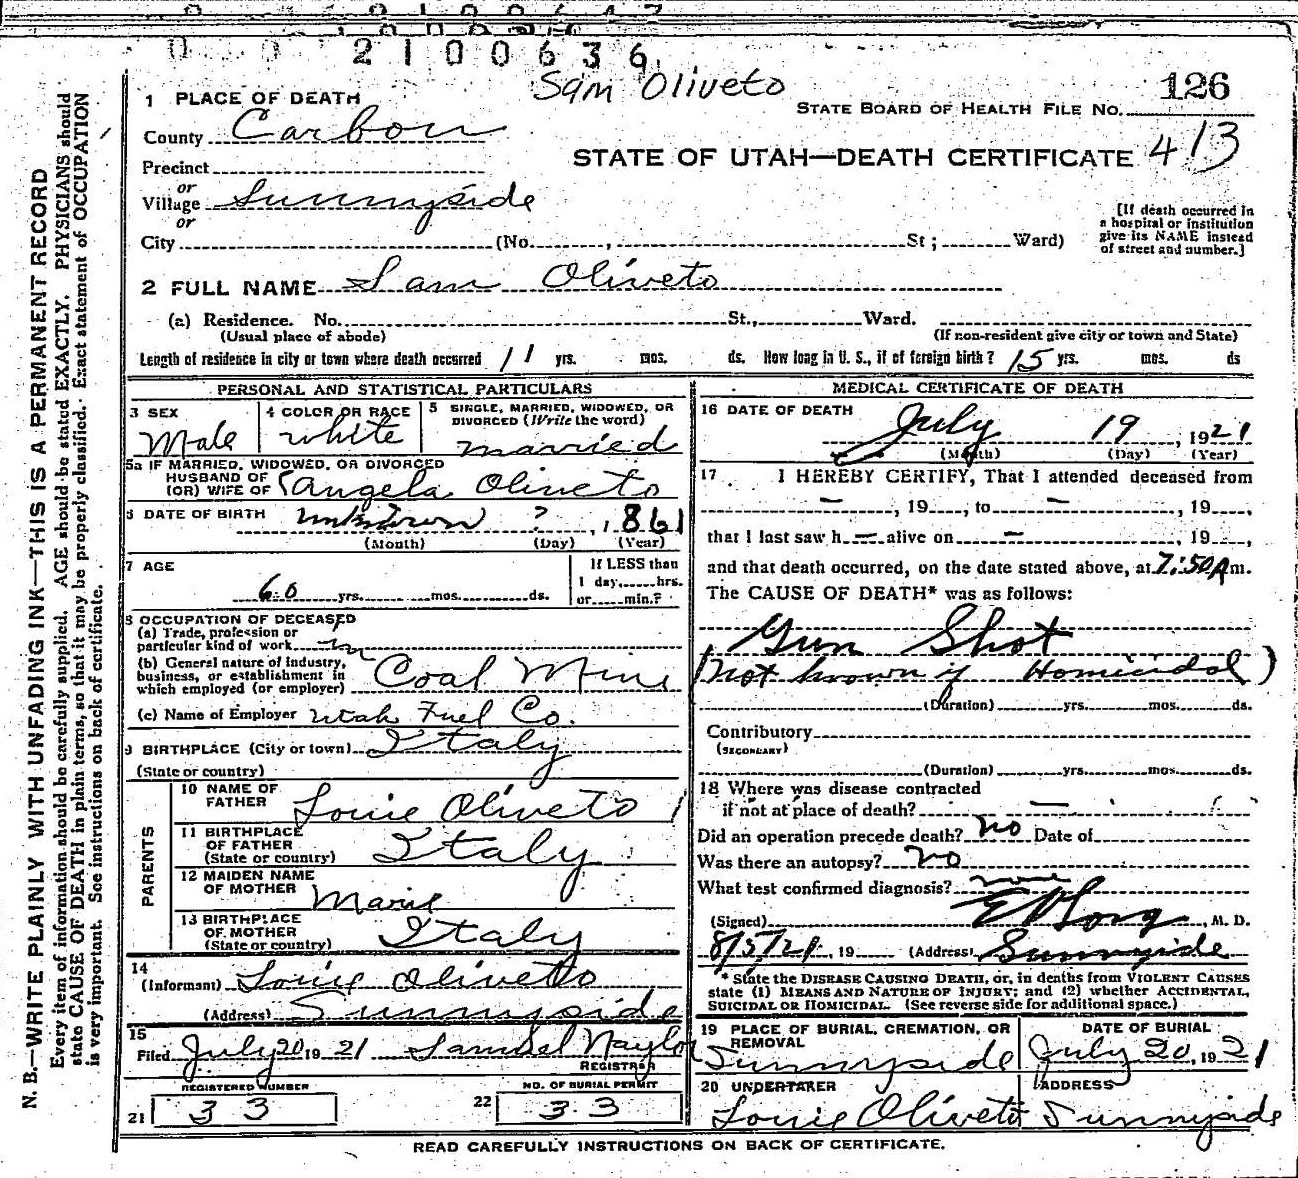 2100636
Sam Oliveto
126
1 PLACE OF DEATH
STATE BOARD OF HEALTH FILE No.
County Carbon
STATE OF UTAH—DEATH CERTIFICATE 413
Precinct
or
Village Sunnyside
or
City (No. , St ; Ward)
[If death occurred in
a hospital or institution
give its NAME instead
of street and number.]
2 FULL NAME Sam Oliveto
(a) Residence. No. St., Ward.
(Usual place of abode) (If non-resident give city or town and State)
Length of residence in city or town where death occurred 11 yrs. mos. ds. How long in U. S., if of foreign birth? 15 yrs. mos. ds
PERSONAL AND STATISTICAL PARTICULARS
3 SEX
Male
4 COLOR OR RACE
white
5 SINGLE, MARRIED, WIDOWED, OR
DIVORCED (Write the word)
married
5a IF MARRIED, WIDOWED, OR DIVORCED
HUSBAND OF
(OR) WIFE OF Angela Oliveto
6 DATE OF BIRTH unknown ? , 1861
(Month) (Day) (Year)
7 AGE
60 yrs. mos. ds.
If LESS than
1 day, hrs.
or min.?
8 OCCUPATION OF DECEASED
(a) Trade, profession or
particular kind of work
(b) General nature of industry,
business, or establishment in
which employed (or employer) Coal Mine
(c) Name of Employer Utah Fuel Co.
9 BIRTHPLACE (City or town) Italy
(State or country)
PARENTS
10 NAME OF
FATHER Louie Oliveto
11 BIRTHPLACE
OF FATHER
(State or country) Italy
12 MAIDEN NAME
OF MOTHER Marie
13 BIRTHPLACE
OF MOTHER
(State or country) Italy
14
(Informant) Louie Oliveto
(Address) Sunnyside
15
Filed July 20 19 21 Samuel Naylor
REGISTRAR
REGISTERED NUMBER
21 33
NO. OF BURIAL PERMIT
22 33
MEDICAL CERTIFICATE OF DEATH
16 DATE OF DEATH
July 19 , 1921
(Month) (Day) (Year)
17 I HEREBY CERTIFY, That I attended deceased from
— , 19 , to — , 19 ,
that I last saw h — alive on — , 19 ,
and that death occurred, on the date stated above, at 7:50 A m.
The CAUSE OF DEATH* was as follows:
Gun Shot
(not known if Homicidal)
(Duration) yrs. mos. ds.
Contributory
(SECONDARY)
(Duration) yrs. mos. ds.
18 Where was disease contracted
if not at place of death? —
Did an operation precede death? no Date of
Was there an autopsy? no
What test confirmed diagnosis? none
(Signed) , M. D.
8/5/21, 19 (Address) Sunnyside
* State the DISEASE CAUSING DEATH, or, in deaths from VIOLENT CAUSES
state (1) MEANS AND NATURE OF INJURY; and (2) whether ACCIDENTAL,
SUICIDAL OR HOMICIDAL. (See reverse side for additional space.)
19 PLACE OF BURIAL, CREMATION, OR
REMOVAL
Sunnyside
DATE OF BURIAL
July 20, 1921
20 UNDERTAKER
Louie Oliveto
ADDRESS
Sunnyside
READ CAREFULLY INSTRUCTIONS ON BACK OF CERTIFICATE.
N. B.—WRITE PLAINLY WITH UNFADING INK—THIS IS A PERMANENT RECORD
Every item of information should be carefully supplied. AGE should be stated EXACTLY. PHYSICIANS should
state CAUSE OF DEATH in plain terms, so that it may be properly classified. Exact statement of OCCUPATION
is very important. See instructions on back of certificate.